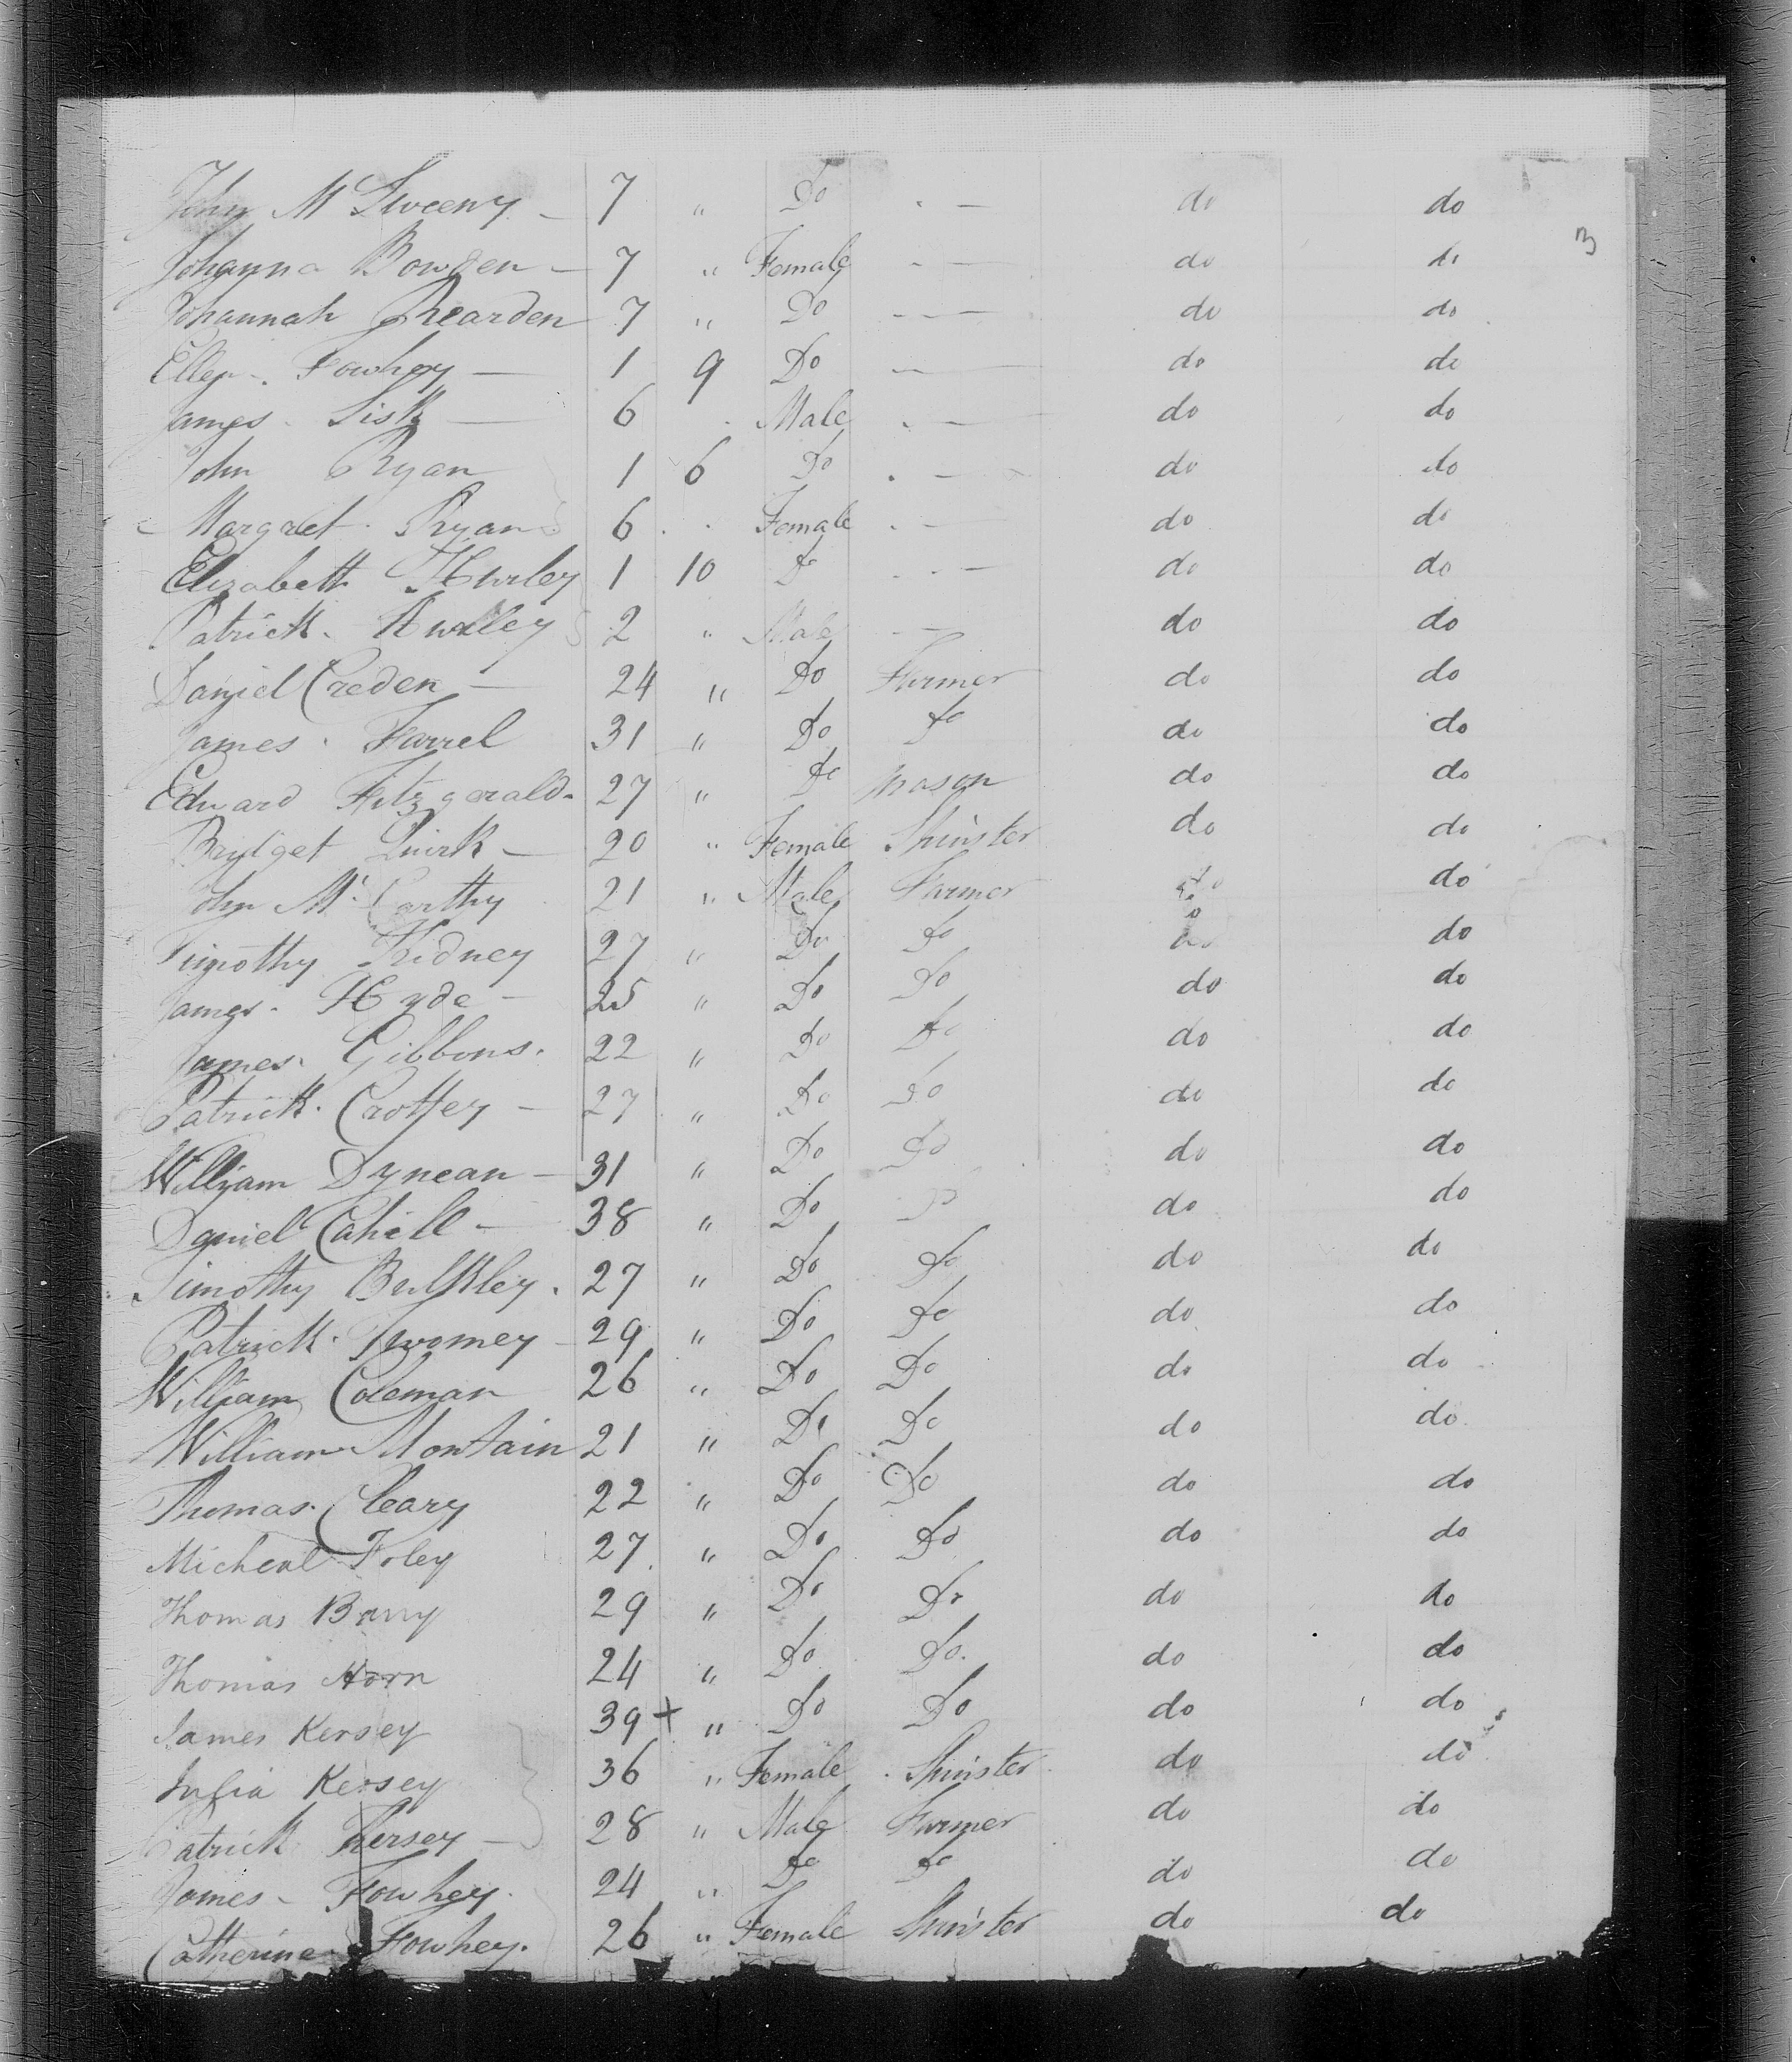 John McSweeny - 7 " Do . - do do
3
Johanna Bowden - 7 " Female - - do do
Johannah Rearden 7 " Do - - - do do
Ellen Fowhey - 1 9 Do - - do do
James Sisk - 6 . Male . - do do
John Ryan 1 6 Do . - do do
Margret Ryan 6 . Female . - do do
Elizabeth Hurley 1 10 Do . - do do
Patrick Hurley 2 " Male - - do do
Daniel Creden - 24 " Do Farmer do do
James Farrel 31 " Do Do do do
Edward Fitzgerald - 27 " Do Mason do do
Bridget Quirk - 20 " Female Spinster do do
John McCarthy 21 " Male Farmer do do
Timothy Kidney 27 " Do Do do do
James Hyde - 25 " Do Do do do
James Gibbons 22 " Do Do do do
Patrick Crottey - 27 " Do Do do do
William Dynean - 31 " Do Do do do
Daniel Cahill - 38 " Do Do do do
Timothy Bulkley 27 " Do Do do do
Patrick Twomey - 29 " Do Do do do
William Coleman 26 " Do Do do do
William Montain 21 " Do Do do do
Thomas Cleary 22 " Do Do do do
Micheal Foley 27 " Do Do do do
Thomas Barry 29 " Do Do do do
Thomas Horn 24 " Do Do do do
James Kersey 39 + " Do Do do do
Julia Kersey 36 " Female Spinster do do
Patrick Kersey - 28 " Male Farmer do do
James Fowhey 24 " Do Do do do
Catherine Fowhey 26 " Female Spinster do do